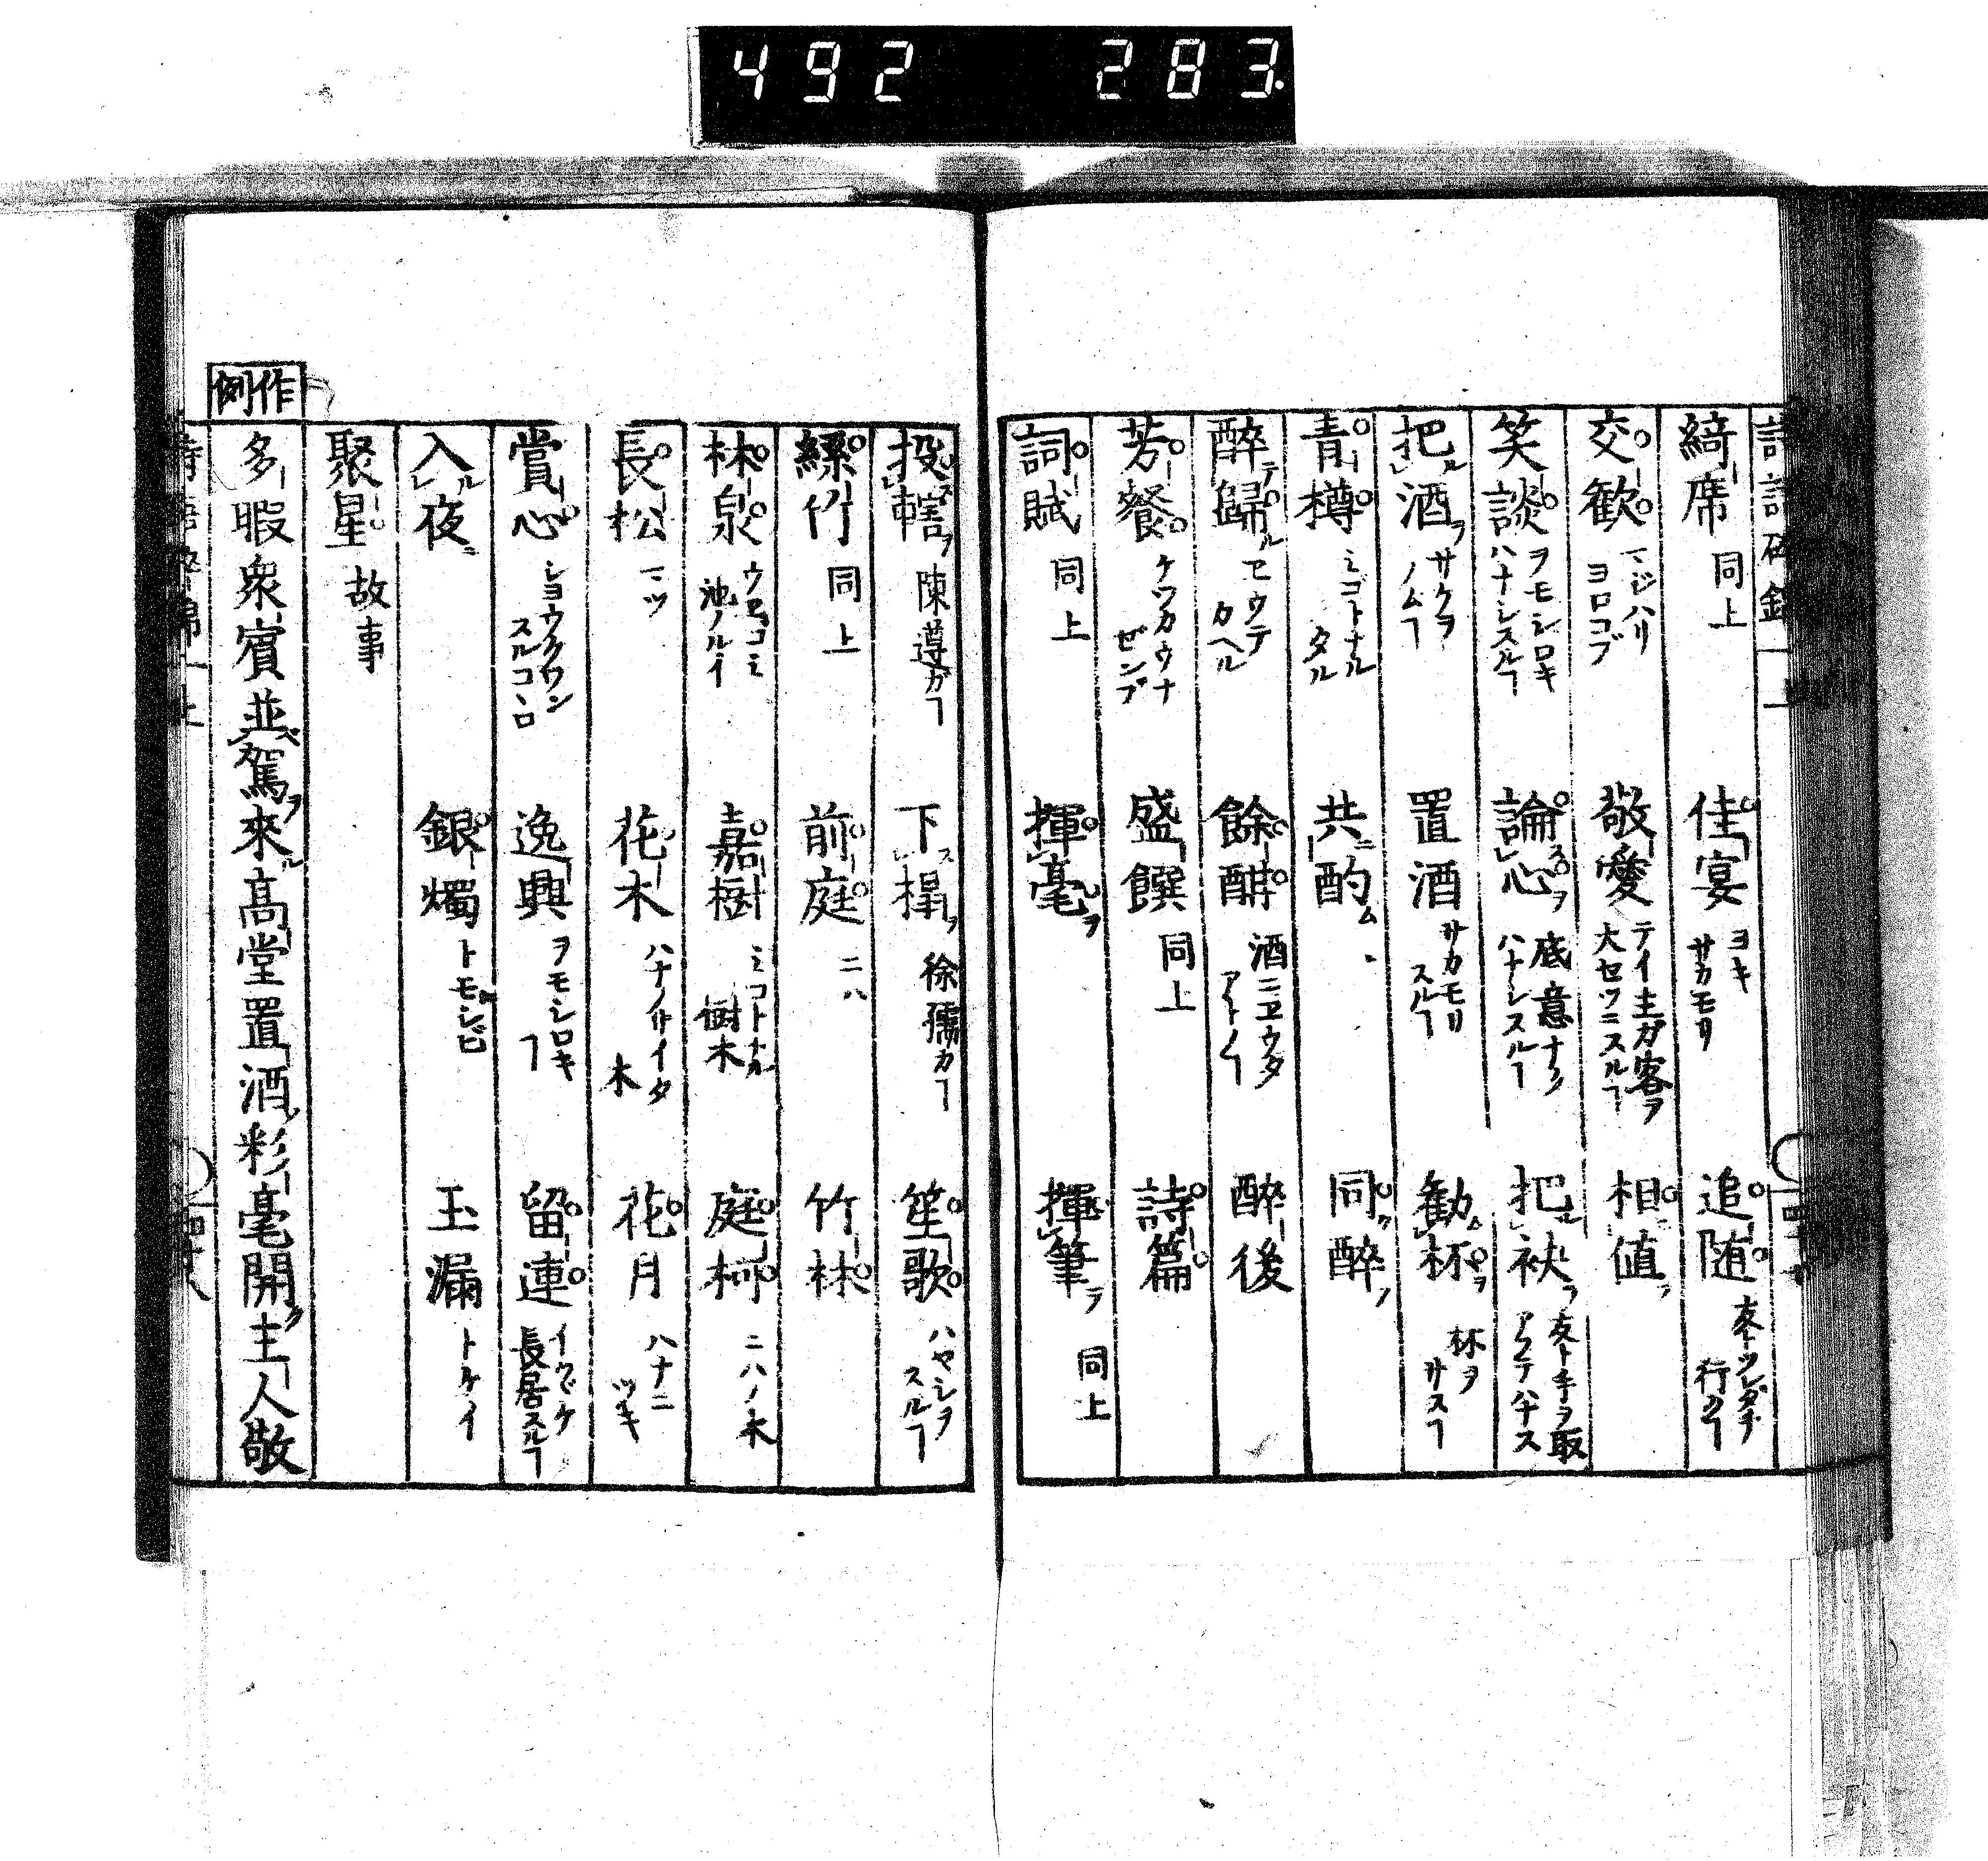 492 283.
綺席 同上 佳宴 ヨキサカモリ 追随 友トツレダチ行クヿ
交歓 マジハリヨロコブ 敬愛 テイ主ガ客ヲ大セツニスルヿ 相値フ
笑談 ヲモシロキハナシスルヿ 論心 底意ナクハナシスルヿ 把袂 友ト手ヲ取アフテハナス
把酒 サケヲノムヿ 置酒 サカモリスルヿ 勧杯 杯ヲサスヿ
青樽 ミゴトナルタル 共酌 同醉
醉歸 ヱウテカヘル 餘酣 酒ニヱウタアト 醉後
芳餐 ケツカウナゼンブ 盛饌 同上 詩篇
詞賦 同上 揮毫 揮筆 同上
投轄 陳遵カヿ 下榻 徐孺カヿ 笙歌 ハヤシヲスルヿ
緑竹 同上 前庭 ニハ 竹林
林泉 ウヱコミ池ノルイ 嘉樹 ミコトナル樹木 庭柯 ニハノ木
長松 マツ 花木 木 花月 ハナニツキ
賞心 シヨウクワンスルコヽロ 逸興 ヲモシロキヿ 留連 イツヾケ長居スルヿ
入夜 銀燭 トモシビ 玉漏 トケイ
聚星 故事
作例
多暇衆賓並駕來高堂置酒彩毫開主人敬